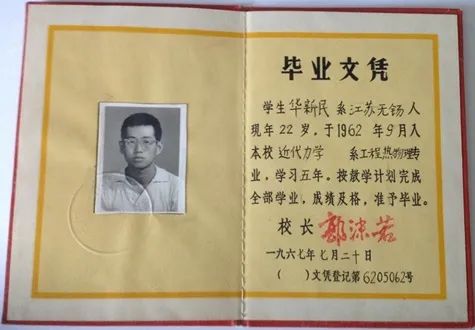 毕业文凭
学生 华新民 系 江苏无锡 人
现年 22 岁，于1962 年 9 月入
本校 近代力学 系 工程热物理 专
业，学习五年。按教学计划完成
全部学业，成绩及格，准予毕业。
校长 郭沫若
一九六七年七月二十日
（ ）文凭登记第6205062号